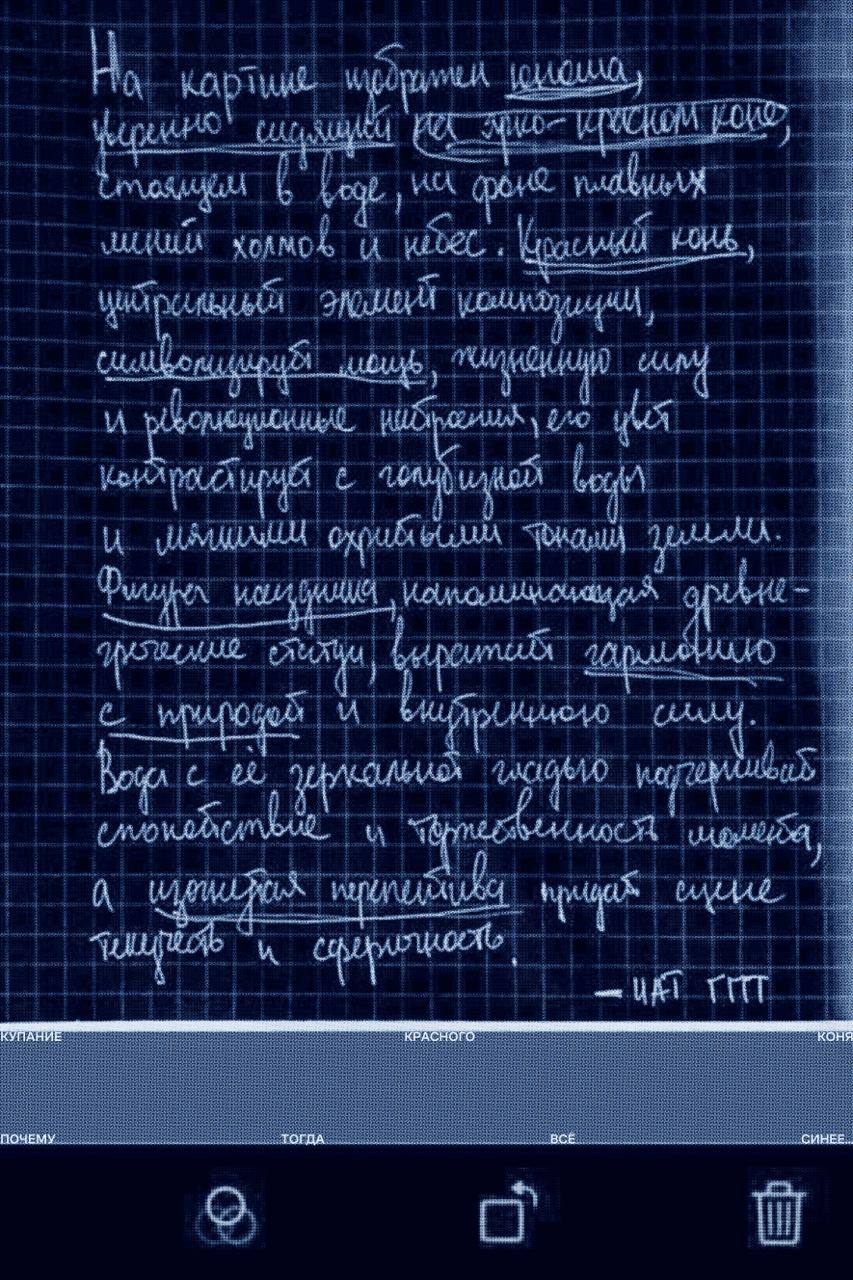 На картине изображен юноша,
уверенно сидящий на ярко-красном коне,
стоящем в воде, на фоне плавных
линий холмов и небес. Красный конь,
центральный элемент композиции,
символизирует мощь, жизненную силу
и революционные настроения, его цвет
контрастирует с голубизной воды
и мягкими охристыми тонами земли.
Фигура наездника, напоминающая древне-
греческие статуи, выражает гармонию
с природой и внутреннюю силу.
Вода с её зеркальной гладью подчеркивает
спокойствие и торжественность момента,
а изогнутая перспектива придаёт сцене
текучесть и сферичность.
— ЧАТ ГПТ
КУПАНИЕ КРАСНОГО КОНЯ
ПОЧЕМУ ТОГДА ВСЁ СИНЕЕ...